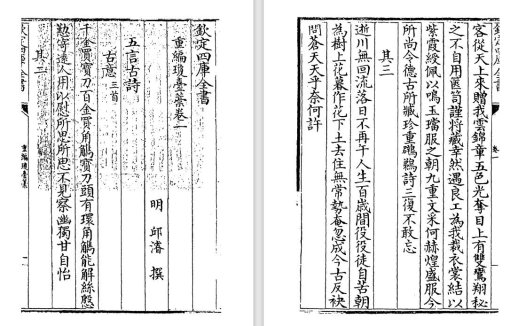 欽定四庫全書
重編瓊臺藁卷一
明 邱濬 撰
五言古詩
古意三首
千金買寶刀百金買角觿寶刀頭有環角觿能解絲慇
勤寄遠人用以慰所思所思不見察幽獨甘自怡
其二
欽定四庫全書
重編瓊臺藁
一
欽定四庫全書
卷一
客從天上來贈我雲錦章五色光奪目上有雙鸞翔秘
之不自用篋笥謹將藏幸然遇良工為我裁衣裳結以
紫霞綬佩以鳴玉璫服之朝九重文采何赫煌盛服今
所尚令德古所藏珍重鵜鶘詩三復不敢忘
其三
逝川無回流落日不再午人生百歲間役役徒自苦朝
為樹上花暮作花下土去住無常勢奄忽成今古反袂
問蒼天天乎奈何許